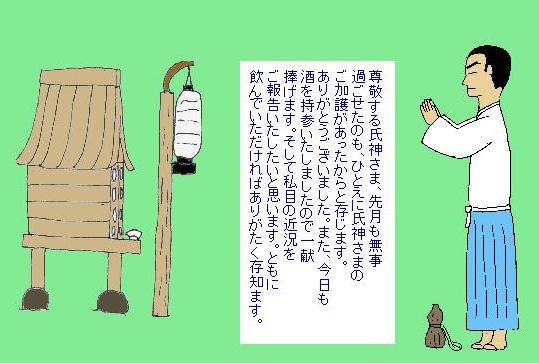 尊敬する氏神さま、先月も無事
過ごせたのも、ひとえに氏神さまの
ご加護があったからと存じます。
ありがとうございました。また、今日も
酒を持参いたしましたので一献
捧げます。そして私目の近況を
ご報告いたしたいと思います。ともに
飲んでいただければありがたく存知ます。